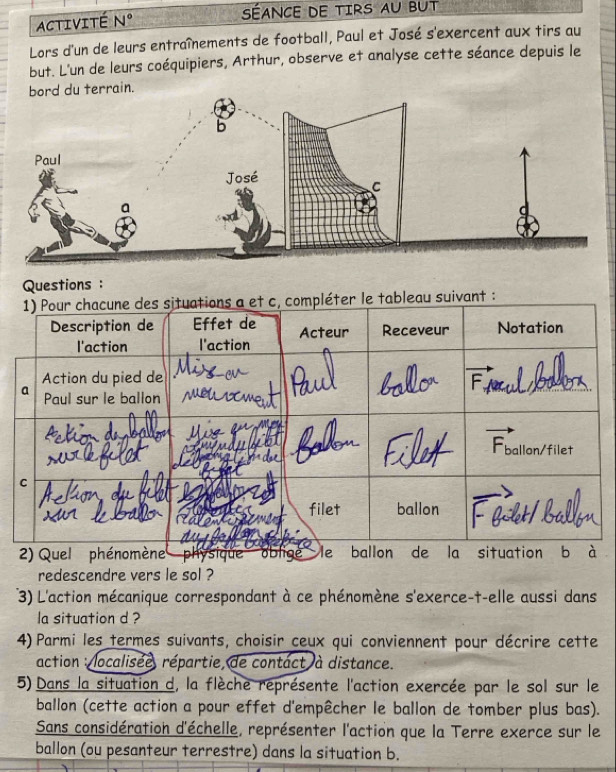 ACTIVITÉ N°
SÉANCE DE TIRS AU BUT
Lors d'un de leurs entraînements de football, Paul et José s'exercent aux tirs au
but. L'un de leurs coéquipiers, Arthur, observe et analyse cette séance depuis le
bord du terrain.
b
Paul
José
c
a
d
Questions :
1) Pour chacune des situations a et c, compléter le tableau suivant :
Description de l'action
Effet de l'action
Acteur
Receveur
Notation
a
Action du pied de Paul sur le ballon
Mise en mouvement
Paul
ballon
F Paul/ballon
c
Action du ballon sur le filet
Mise en
Ballon
Filet
F ballon/filet
Action du filet sur le ballon
ralentissement du ballon
filet
ballon
F filet/ballon
2) Quel phénomène physique oblige le ballon de la situation b à
redescendre vers le sol ?
3) L'action mécanique correspondant à ce phénomène s'exerce-t-elle aussi dans
la situation d ?
4) Parmi les termes suivants, choisir ceux qui conviennent pour décrire cette
action : localisée, répartie, de contact, à distance.
5) Dans la situation d, la flèche représente l'action exercée par le sol sur le
ballon (cette action a pour effet d'empêcher le ballon de tomber plus bas).
Sans considération d'échelle, représenter l'action que la Terre exerce sur le
ballon (ou pesanteur terrestre) dans la situation b.